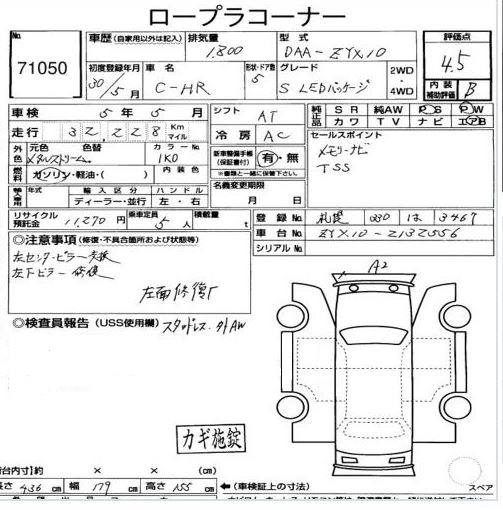 ロープラコーナー
No. 71050
車歴 (自家用以外は記入) 排気量 1,800 型式 DAA-ZYX10 評価点 4.5
初度登録年月 30年 5月 車名 C-HR 形状・ドア数 5 グレード S LEDパッケージ 2WD・4WD 内装補助評価 B
車検 5年 5月 シフト AT 純正品 SR 純AW PS PW
走行 32,228 Km マイル 冷房 AC カワ TV ナビ エアB
外色 元色 メタルストリーム 色替 カラーNo. 1K0 新車整備手帳(保証書付) 有・無 ※書類と一緒に保管下さい。 セールスポイント
燃料 ガソリン・軽油・( ) 内装色 メモリーナビ
輸入車 年式 輸入区分 ディーラー・並行 ハンドル 左・右 名義変更期限 月 日 TSS
リサイクル預託金 11,270円 乗車定員 5人 積載量 t 登録No. 札幌 330 は 3467
◎注意事項 (修復・不具合箇所および状態等) 車台No. ZYX10-2132556
シリアルNo.
左センターピラー交換
左下ピラー 修復
左面修復有
A2
◎検査員報告 (USS使用欄) スタッドレス. 外AW
カギ施錠
(荷台内寸)約 × × (cm)
長さ 436 cm 幅 179 cm 高さ 155 cm ←(車検証上の寸法) スペア